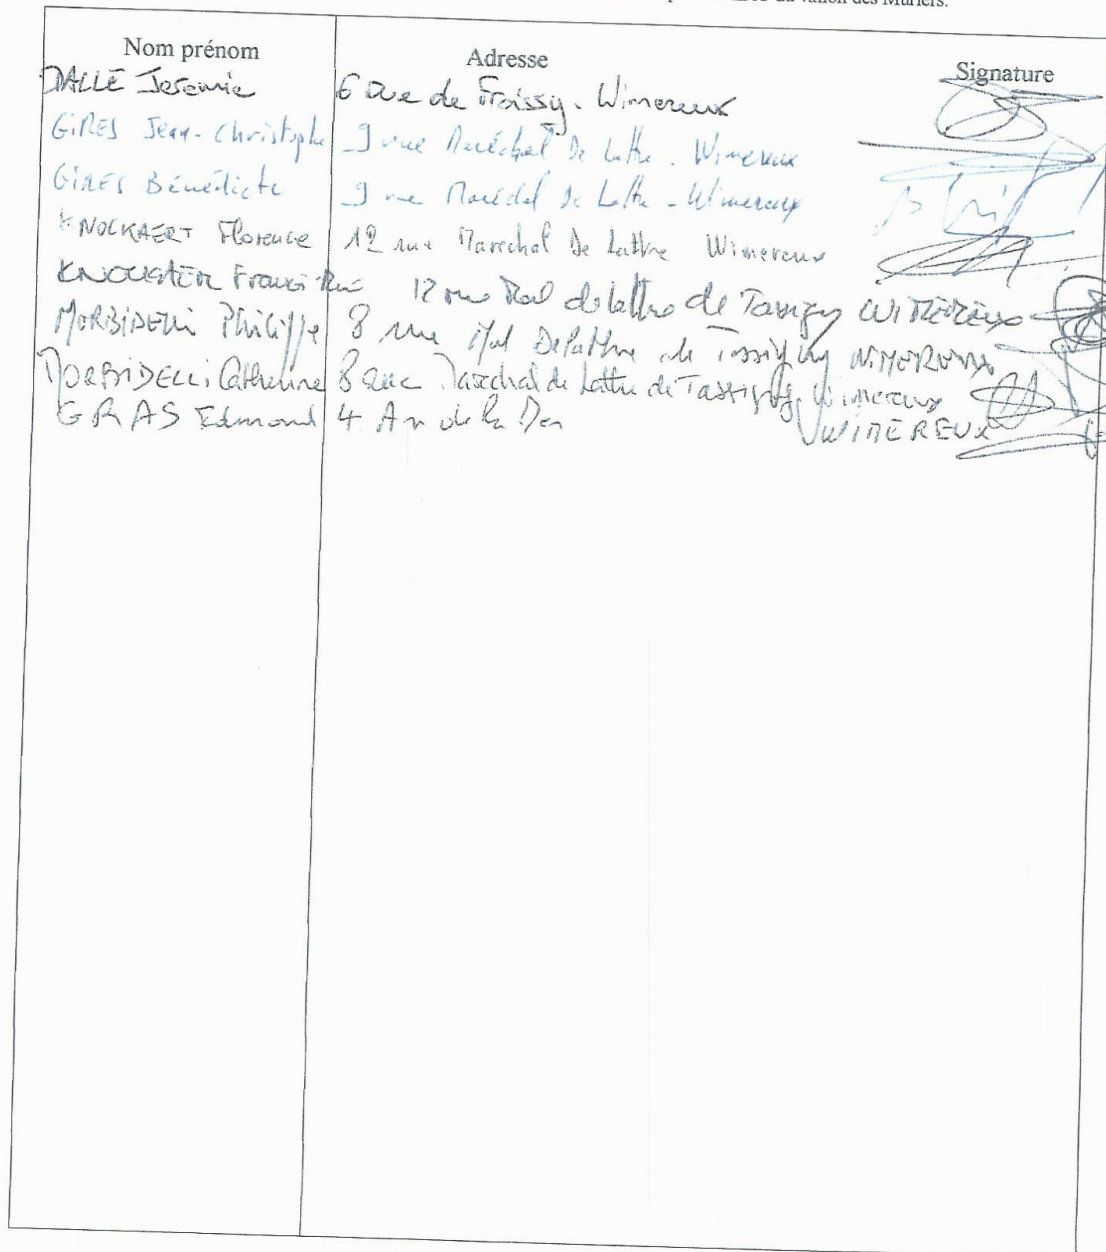 du vallon des Mûriers.
Nom prénom Adresse Signature
DALLE Jeremie 6 rue de Froissy - Wimereux
GIRES Jean-Christophe 9 rue Maréchal De Lattre - Wimereux
GIRES Bénédicte 9 rue Maréchal De Lattre - Wimereux
KNOCKAERT Florence 12 rue Marechal De Lattre Wimereux
KNOCKAERT 12 rue Mal de lattre de Tassigny WIMEREUX
MORBIDELLI Philippe 8 rue Mal De Lattre de Tassigny WIMEREUX
MORBIDELLI Catherine 8 rue Marechal de Lattre de Tassigny Wimereux
GRAS Edmond 4 de la WIMEREUX